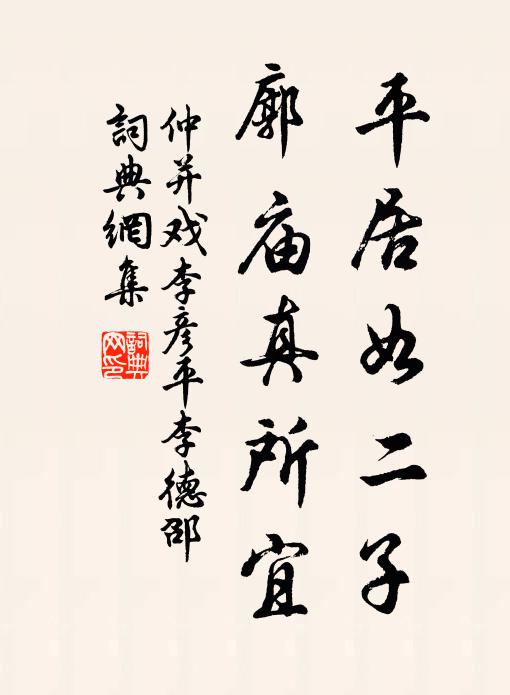 平居如二子
廓庙真所宜
仲并戏李彦平李德邵
詞典網集
詞典網印